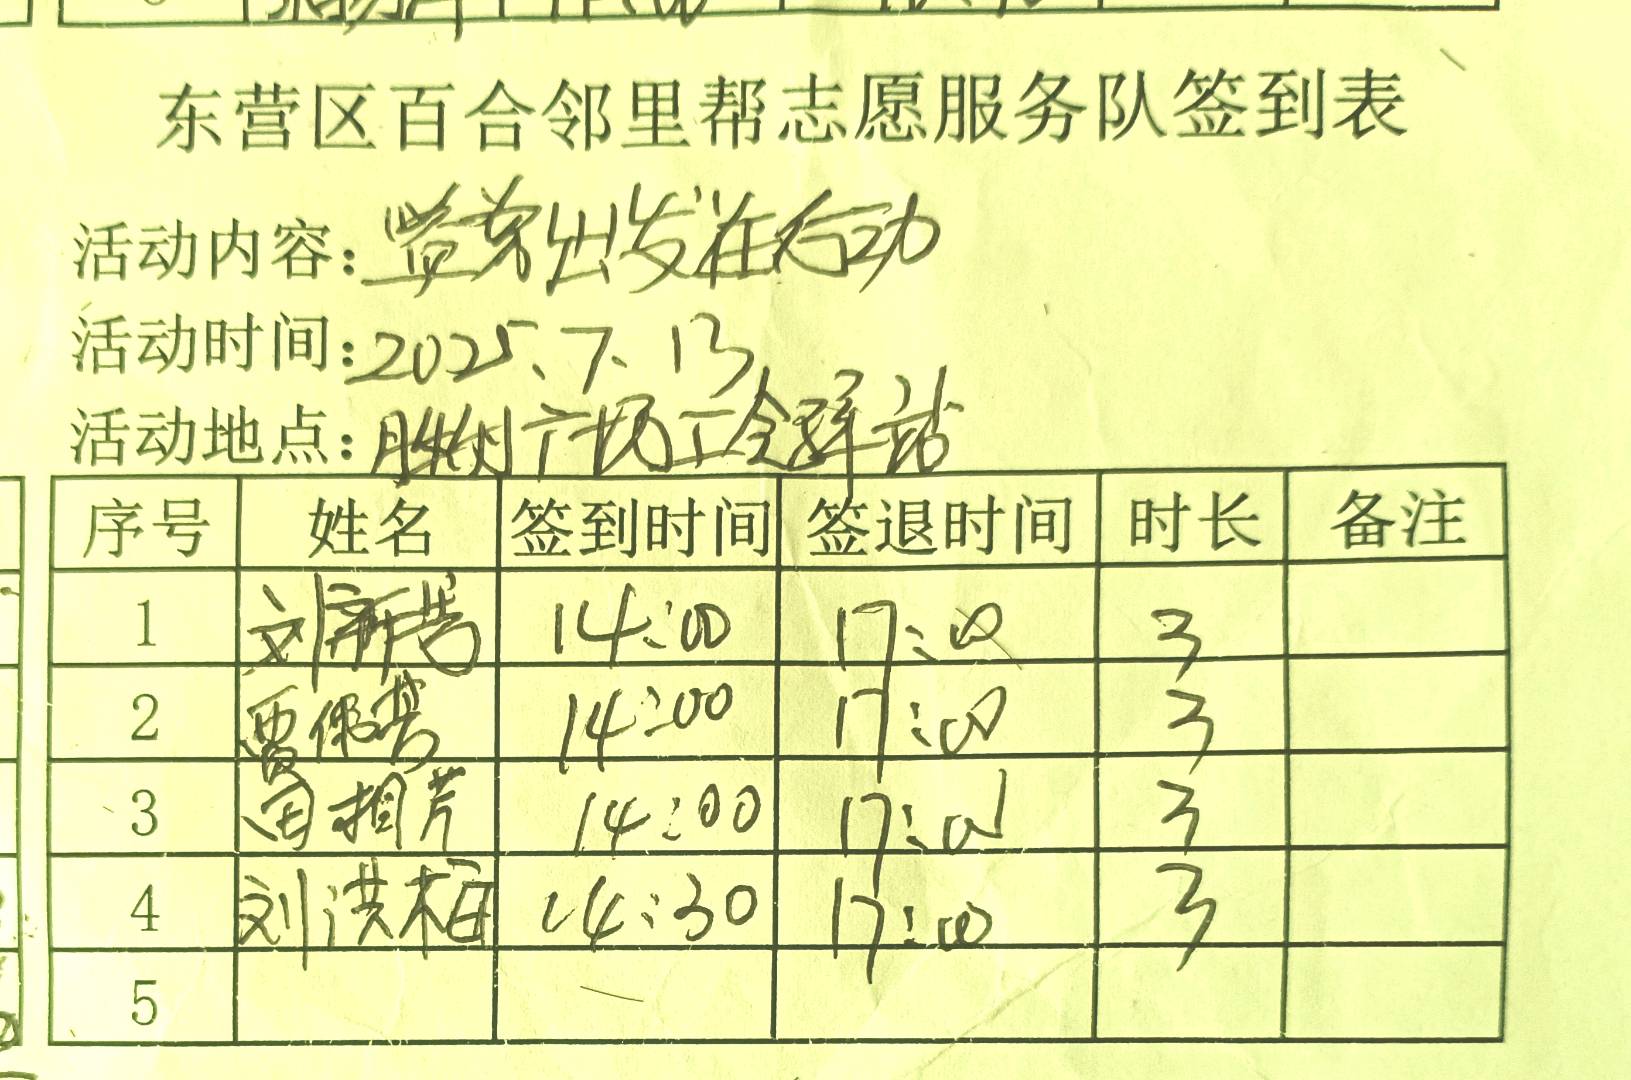 东营区百合邻里帮志愿服务队签到表
活动内容: 出发在行动
活动时间: 2025.7.13
活动地点: 胜利广场工会驿站
序号 姓名 签到时间 签退时间 时长 备注
1 刘新芳 14:00 17:00 3
2 贾佩芳 14:00 17:00 3
3 田相芹 14:00 17:00 3
4 刘洪梅 14:30 17:00 3
5